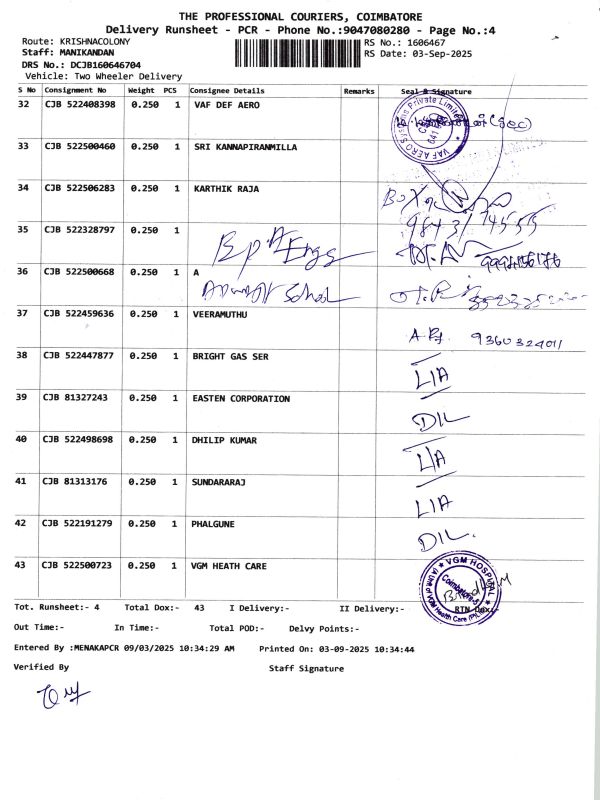 THE PROFESSIONAL COURIERS, COIMBATORE
Delivery Runsheet - PCR - Phone No.:9047080280 - Page No.:4
Route: KRISHNACOLONY
RS No.: 1606467
Staff: MANIKANDAN
RS Date: 03-Sep-2025
DRS No.: DCJB160646704
Vehicle: Two Wheeler Delivery
S No Consignment No Weight PCS Consignee Details Remarks Seal & Signature
32 CJB 522408398 0.250 1 VAF DEF AERO
33 CJB 522500460 0.250 1 SRI KANNAPIRANMILLA
34 CJB 522506283 0.250 1 KARTHIK RAJA
98431 74555
35 CJB 522328797 0.250 1
36 CJB 522500668 0.250 1 A
School
37 CJB 522459636 0.250 1 VEERAMUTHU
9360324011
38 CJB 522447877 0.250 1 BRIGHT GAS SER
LIA
39 CJB 81327243 0.250 1 EASTEN CORPORATION
DIL
40 CJB 522498698 0.250 1 DHILIP KUMAR
LIA
41 CJB 81313176 0.250 1 SUNDARARAJ
LIA
42 CJB 522191279 0.250 1 PHALGUNE
DIL.
43 CJB 522500723 0.250 1 VGM HEATH CARE
VGM HOSPITAL
Tot. Runsheet:- 4 Total Dox:- 43 I Delivery:- II Delivery:- RTN Dox:-
Out Time:- In Time:- Total POD:- Delvy Points:-
Entered By :MENAKAPCR 09/03/2025 10:34:29 AM Printed On: 03-09-2025 10:34:44
Verified By Staff Signature